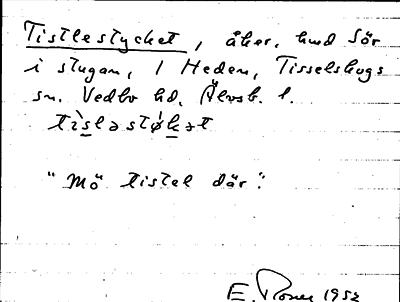 Tistlestycket, åker, hmd Sör
i stugan, 1 Heden, Tisselskogs
sn. Vedbo hd. Älvsb. l.
tìsləstøkət
"Mö tistel där".
E. 1952